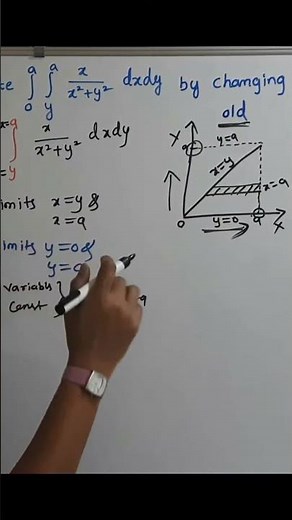 ∫₀ᵃ ∫ᵧᵃ x/(x²+y²) dxdy by changing
old
x=a
∫ x/(x²+y²) dxdy
=y
imits x=y &
x=a
imits y=0 &
y=
Variable
Const
a
Y
y=a
a
x=y
x=a
0
y=0
a
X